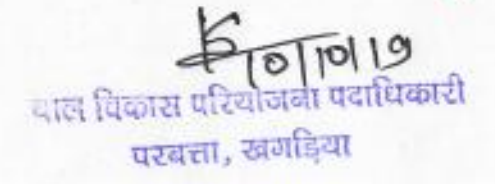 10/10/19
बाल विकास परियोजना पदाधिकारी
परबत्ता, खगड़िया